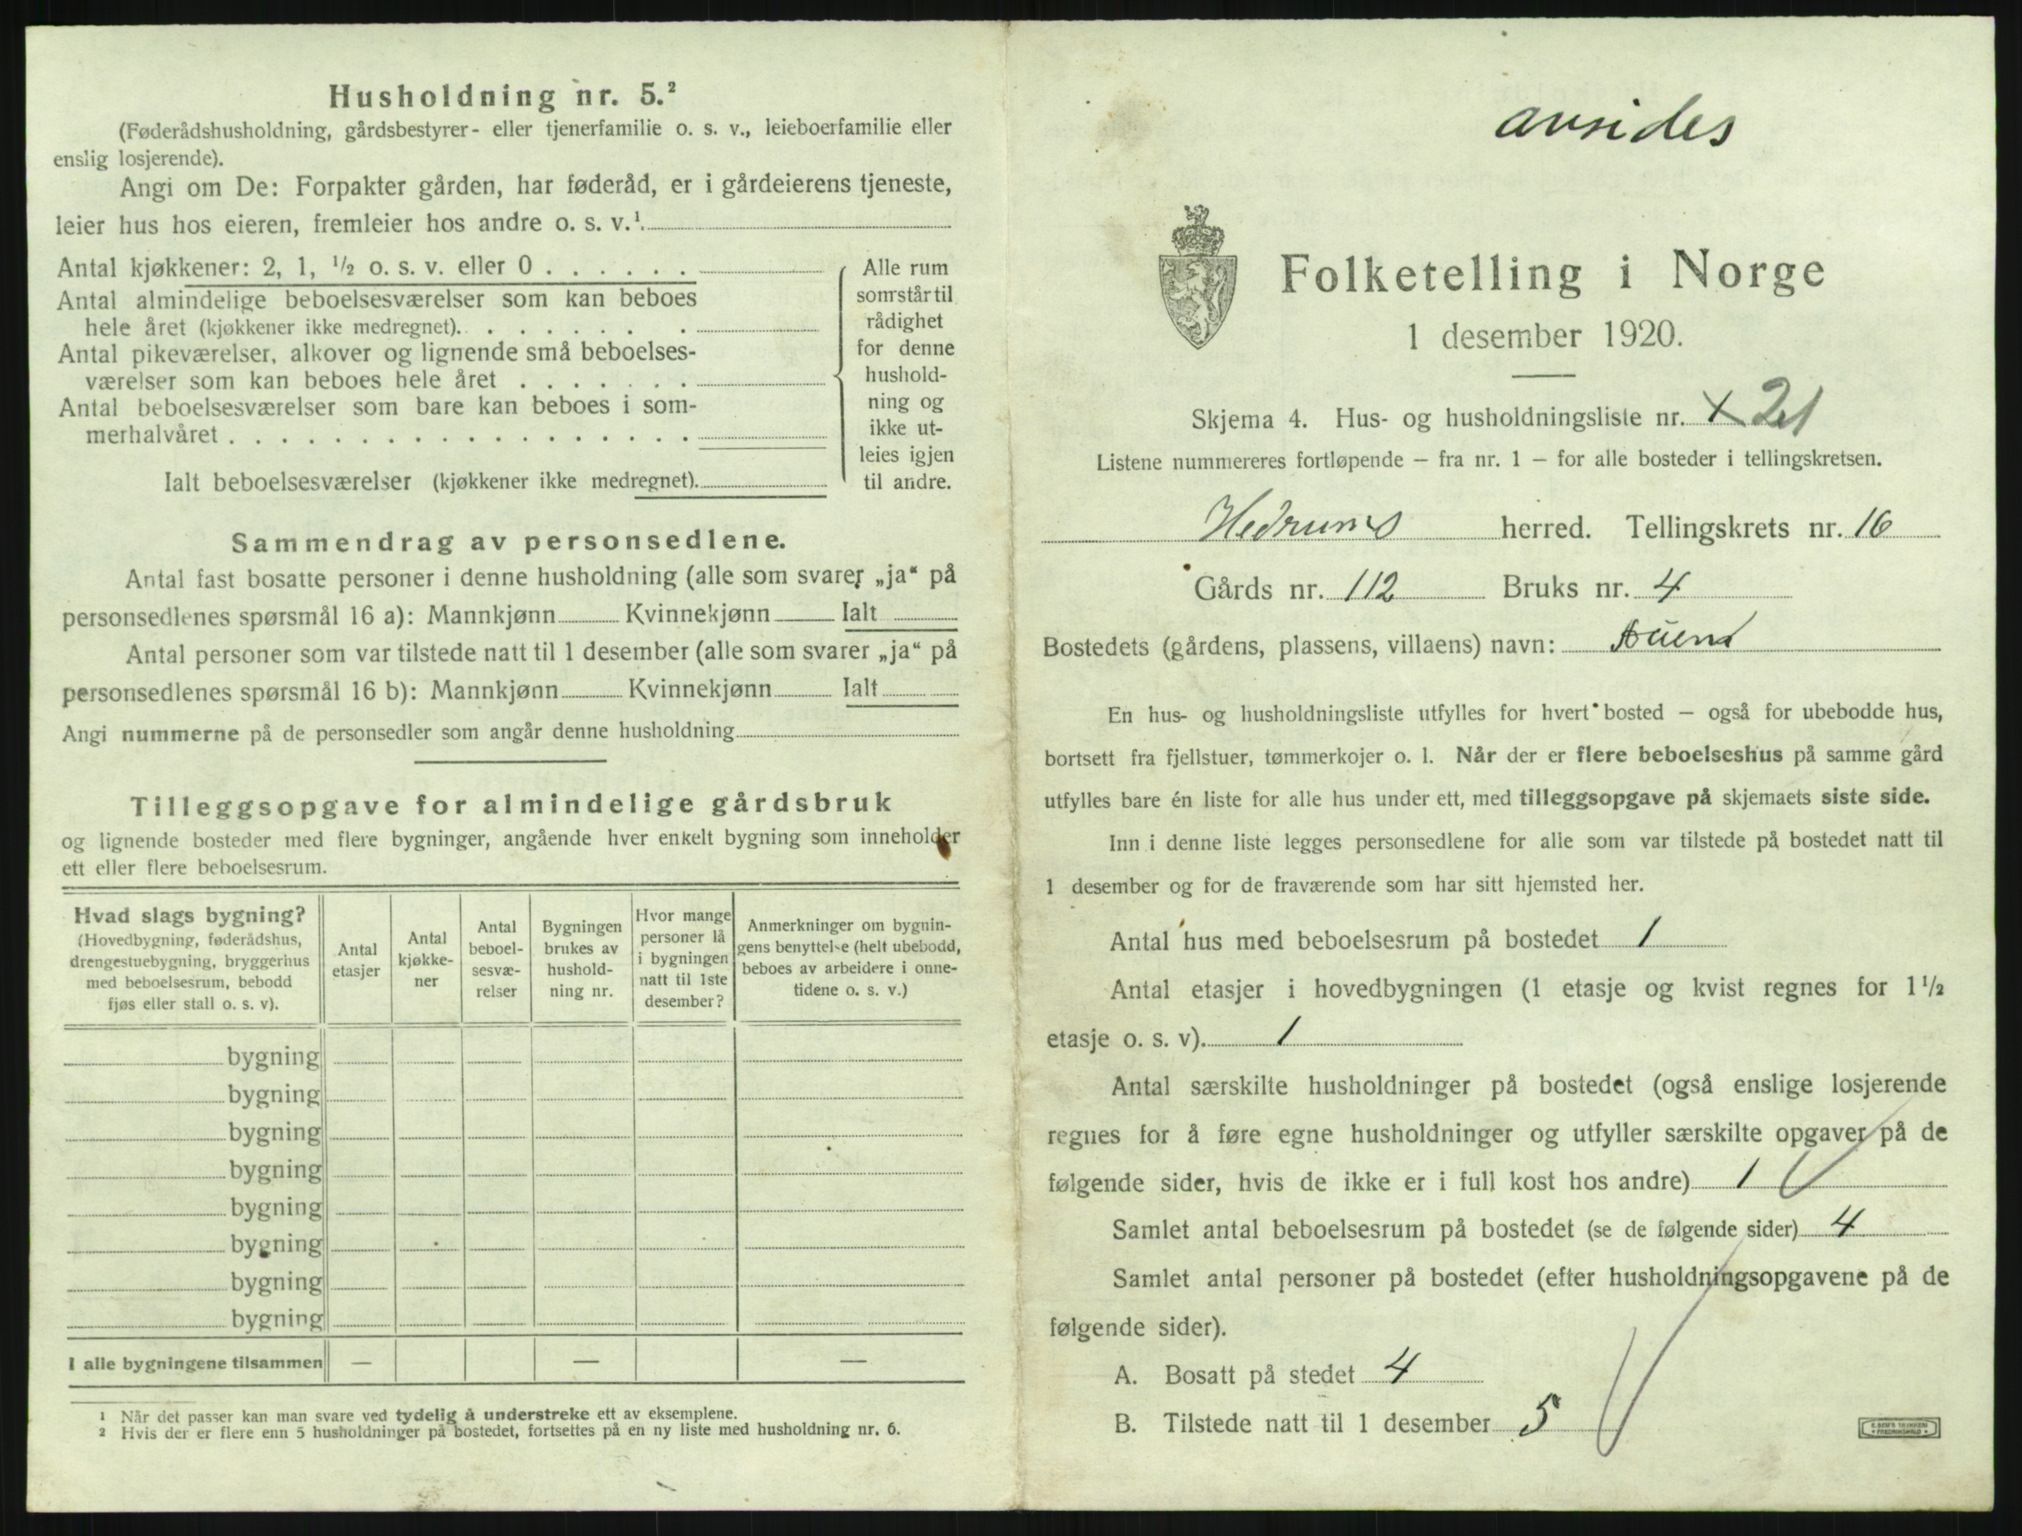 Husholdning nr. 5.²
(Føderådshusholdning, gårdsbestyrer- eller tjenerfamilie o. s. v., leieboerfamilie eller
enslig losjerende).
Angi om De: Forpakter gården, har føderåd, er i gårdeierens tjeneste,
leier hus hos eieren, fremleier hos andre o. s. v.¹
Antal kjøkkener: 2, 1, ½ o. s. v. eller 0 . . . . . .
Antal almindelige beboelsesværelser som kan beboes
hele året (kjøkkener ikke medregnet). . . . . . . .
Antal pikeværelser, alkover og lignende små beboelses-
værelser som kan beboes hele året . . . . . . .
Antal beboelsesværelser som bare kan beboes i som-
merhalvåret . . . . . . . . . . . . . . . . . .
Ialt beboelsesværelser (kjøkkener ikke medregnet).
Alle rum
som står til
rådighet
for denne
hushold-
ning og
ikke ut-
leies igjen
til andre.
Sammendrag av personsedlene.
Antal fast bosatte personer i denne husholdning (alle som svarer „ja“ på
personsedlenes spørsmål 16 a): Mannkjønn Kvinnekjønn Ialt
Antal personer som var tilstede natt til 1 desember (alle som svarer „ja“ på
personsedlenes spørsmål 16 b): Mannkjønn Kvinnekjønn Ialt
Angi nummerne på de personsedler som angår denne husholdning
Tilleggsopgave for almindelige gårdsbruk
og lignende bosteder med flere bygninger, angående hver enkelt bygning som inneholder
ett eller flere beboelsesrum.
Hvad slags bygning?
(Hovedbygning, føderådshus,
drengestuebygning, bryggerhus
med beboelsesrum, bebodd
fjøs eller stall o. s. v).
Antal
etasjer
Antal
kjøkke-
ner
Antal
beboel-
sesvæ-
relser
Bygningen
brukes av
hushold-
ning nr.
Hvor mange
personer lå
i bygningen
natt til 1ste
desember?
Anmerkninger om bygnin-
gens benyttelse (helt ubebodd,
beboes av arbeidere i onne-
tidene o. s. v.)
bygning
bygning
bygning
bygning
bygning
bygning
bygning
bygning
I alle bygningene tilsammen — — —
¹ Når det passer kan man svare ved tydelig å understreke ett av eksemplene.
² Hvis der er flere enn 5 husholdninger på bostedet, fortsettes på en ny liste med husholdning nr. 6.
avsides
Folketelling i Norge
1 desember 1920.
Skjema 4. Hus- og husholdningsliste nr. 21
Listene nummereres fortløpende — fra nr. 1 — for alle bosteder i tellingskretsen.
Hedrums herred. Tellingskrets nr. 16
Gårds nr. 112 Bruks nr. 4
Bostedets (gårdens, plassens, villaens) navn:
En hus- og husholdningsliste utfylles for hvert bosted — også for ubebodde hus,
bortsett fra fjellstuer, tømmerkojer o. l. Når der er flere beboelseshus på samme gård
utfylles bare én liste for alle hus under ett, med tilleggsopgave på skjemaets siste side.
Inn i denne liste legges personsedlene for alle som var tilstede på bostedet natt til
1 desember og for de fraværende som har sitt hjemsted her.
Antal hus med beboelsesrum på bostedet 1
Antal etasjer i hovedbygningen (1 etasje og kvist regnes for 1½
etasje o. s. v). 1
Antal særskilte husholdninger på bostedet (også enslige losjerende
regnes for å føre egne husholdninger og utfyller særskilte opgaver på de
følgende sider, hvis de ikke er i full kost hos andre) 1
Samlet antal beboelsesrum på bostedet (se de følgende sider) 4
Samlet antal personer på bostedet (efter husholdningsopgavene på de
følgende sider).
A. Bosatt på stedet 4
B. Tilstede natt til 1 desember 5